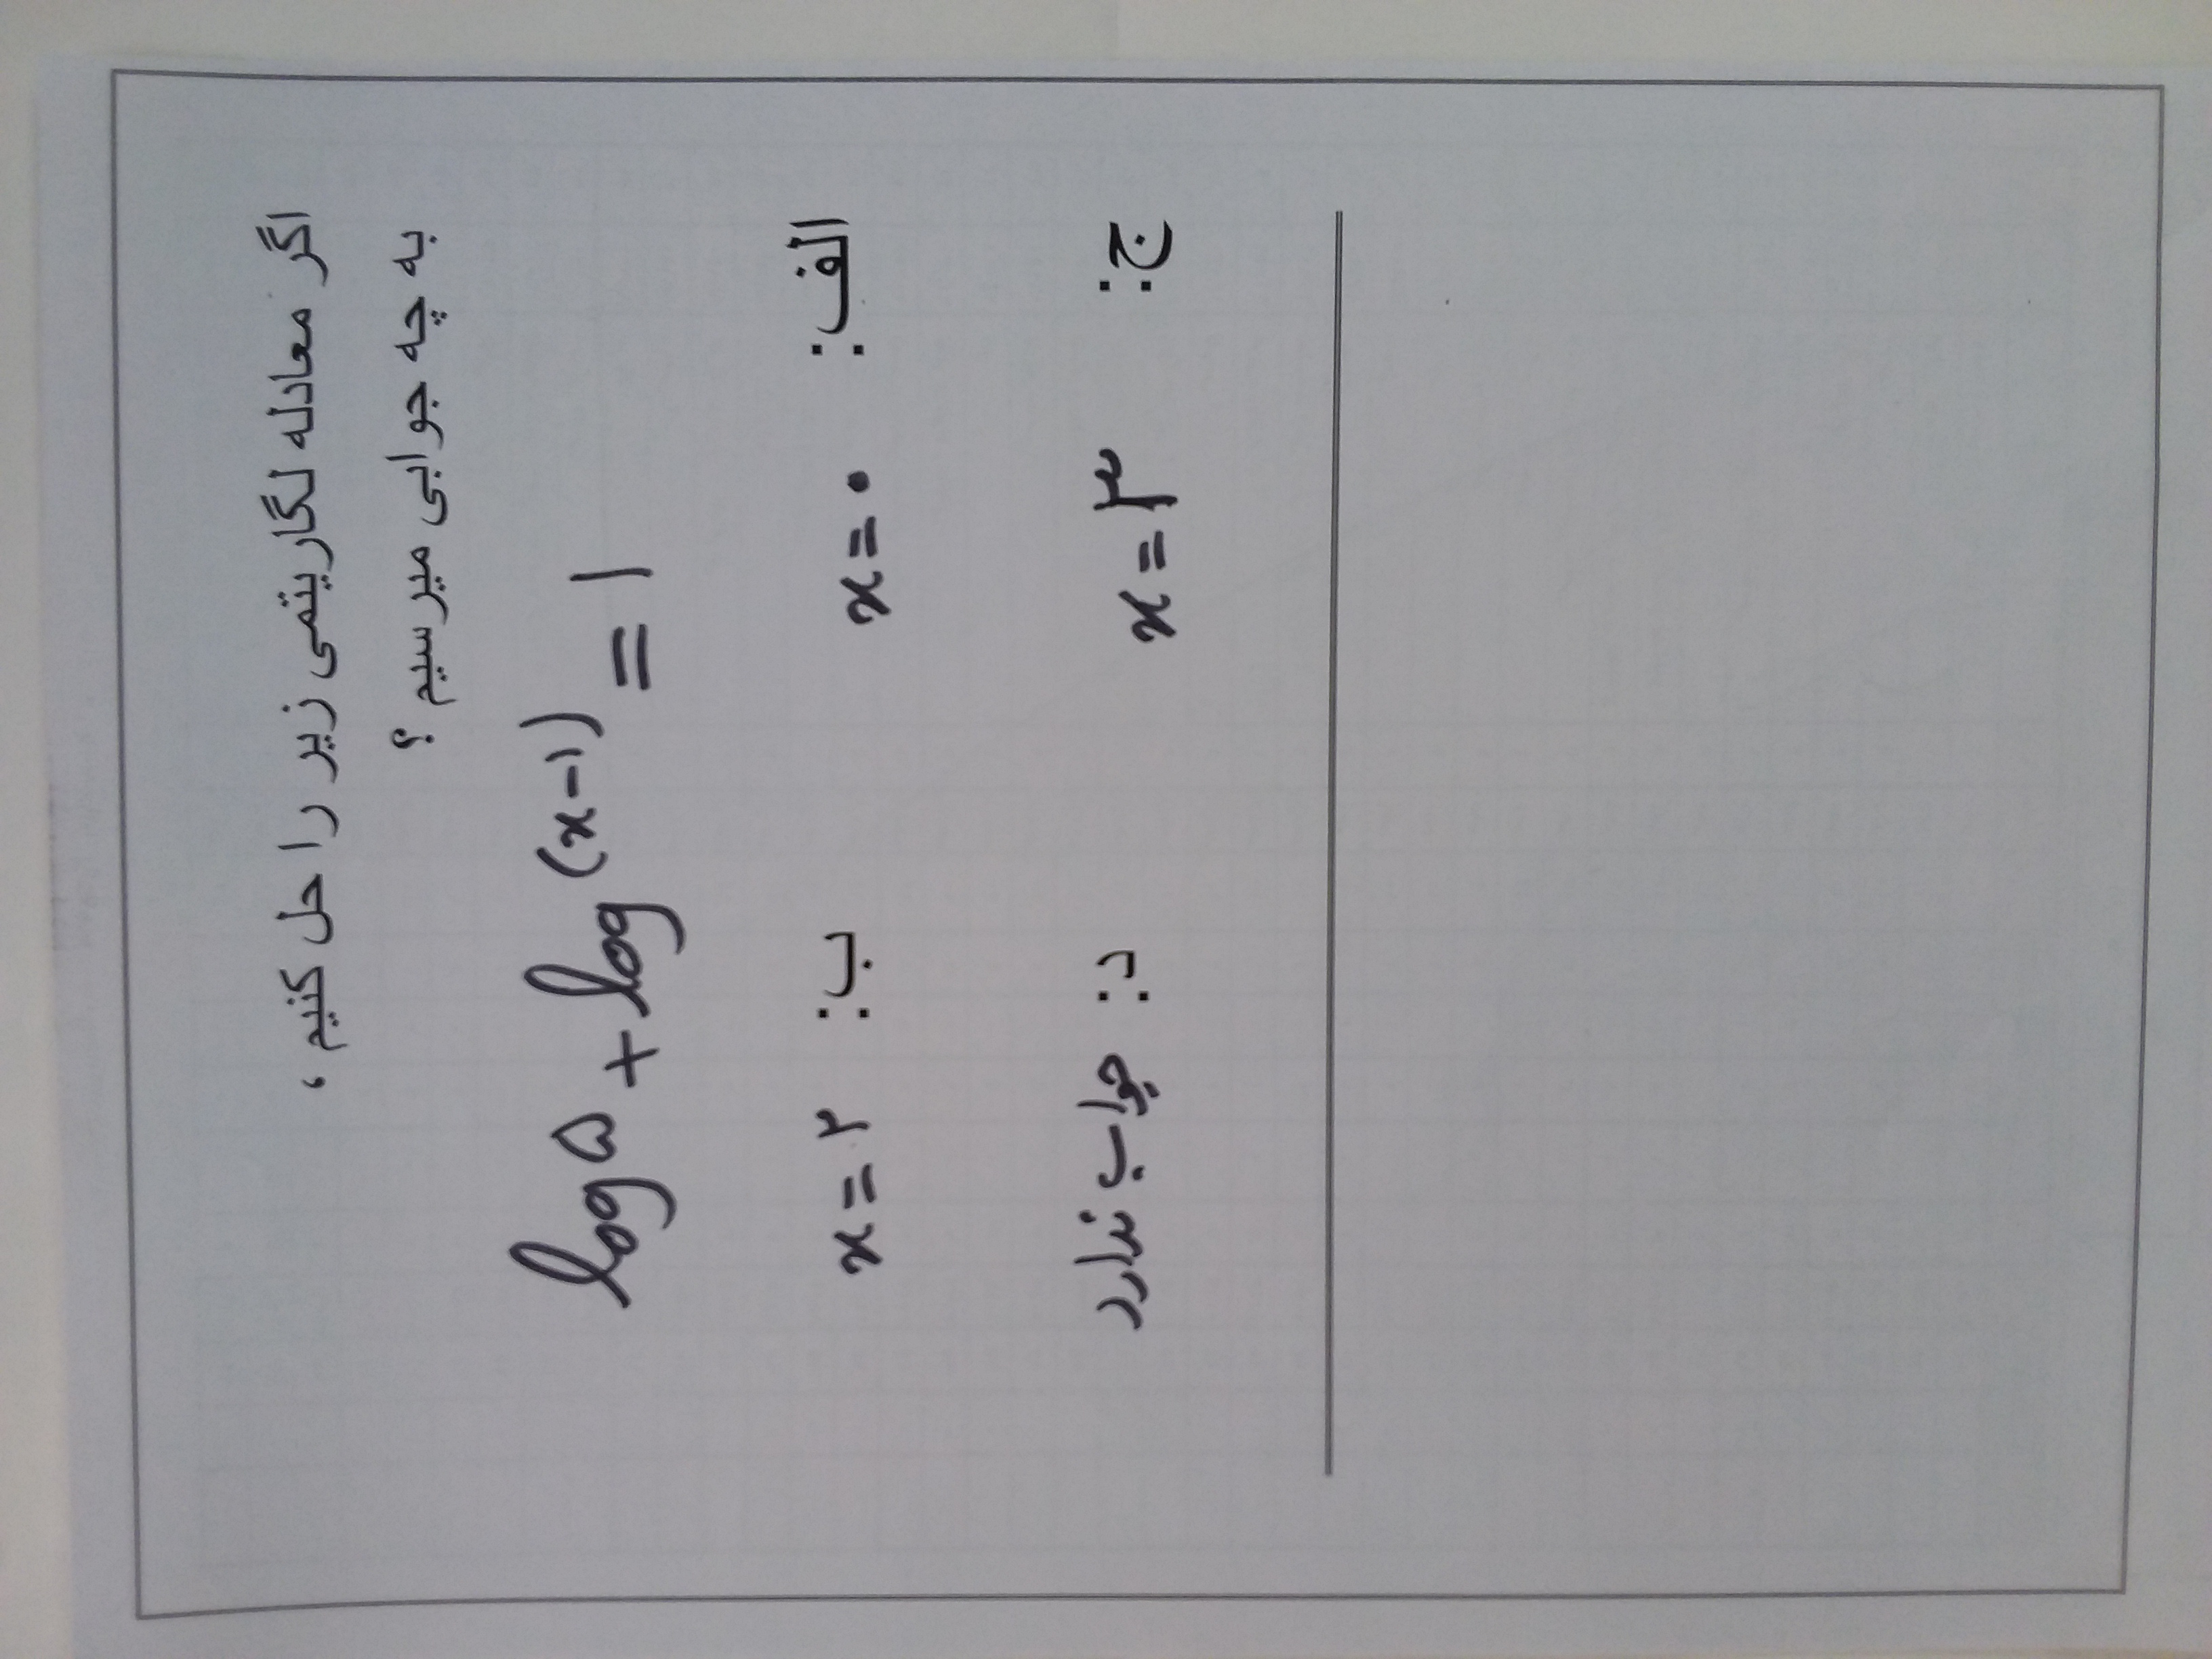 اگر معادله لگاریتمی زیر را حل کنیم ،
به چه جوابی میرسیم ؟
log۵ + log(x-۱) = ۱
الف: x=۰ ب: x=۲
ج: x=۳ د: جواب ندارد